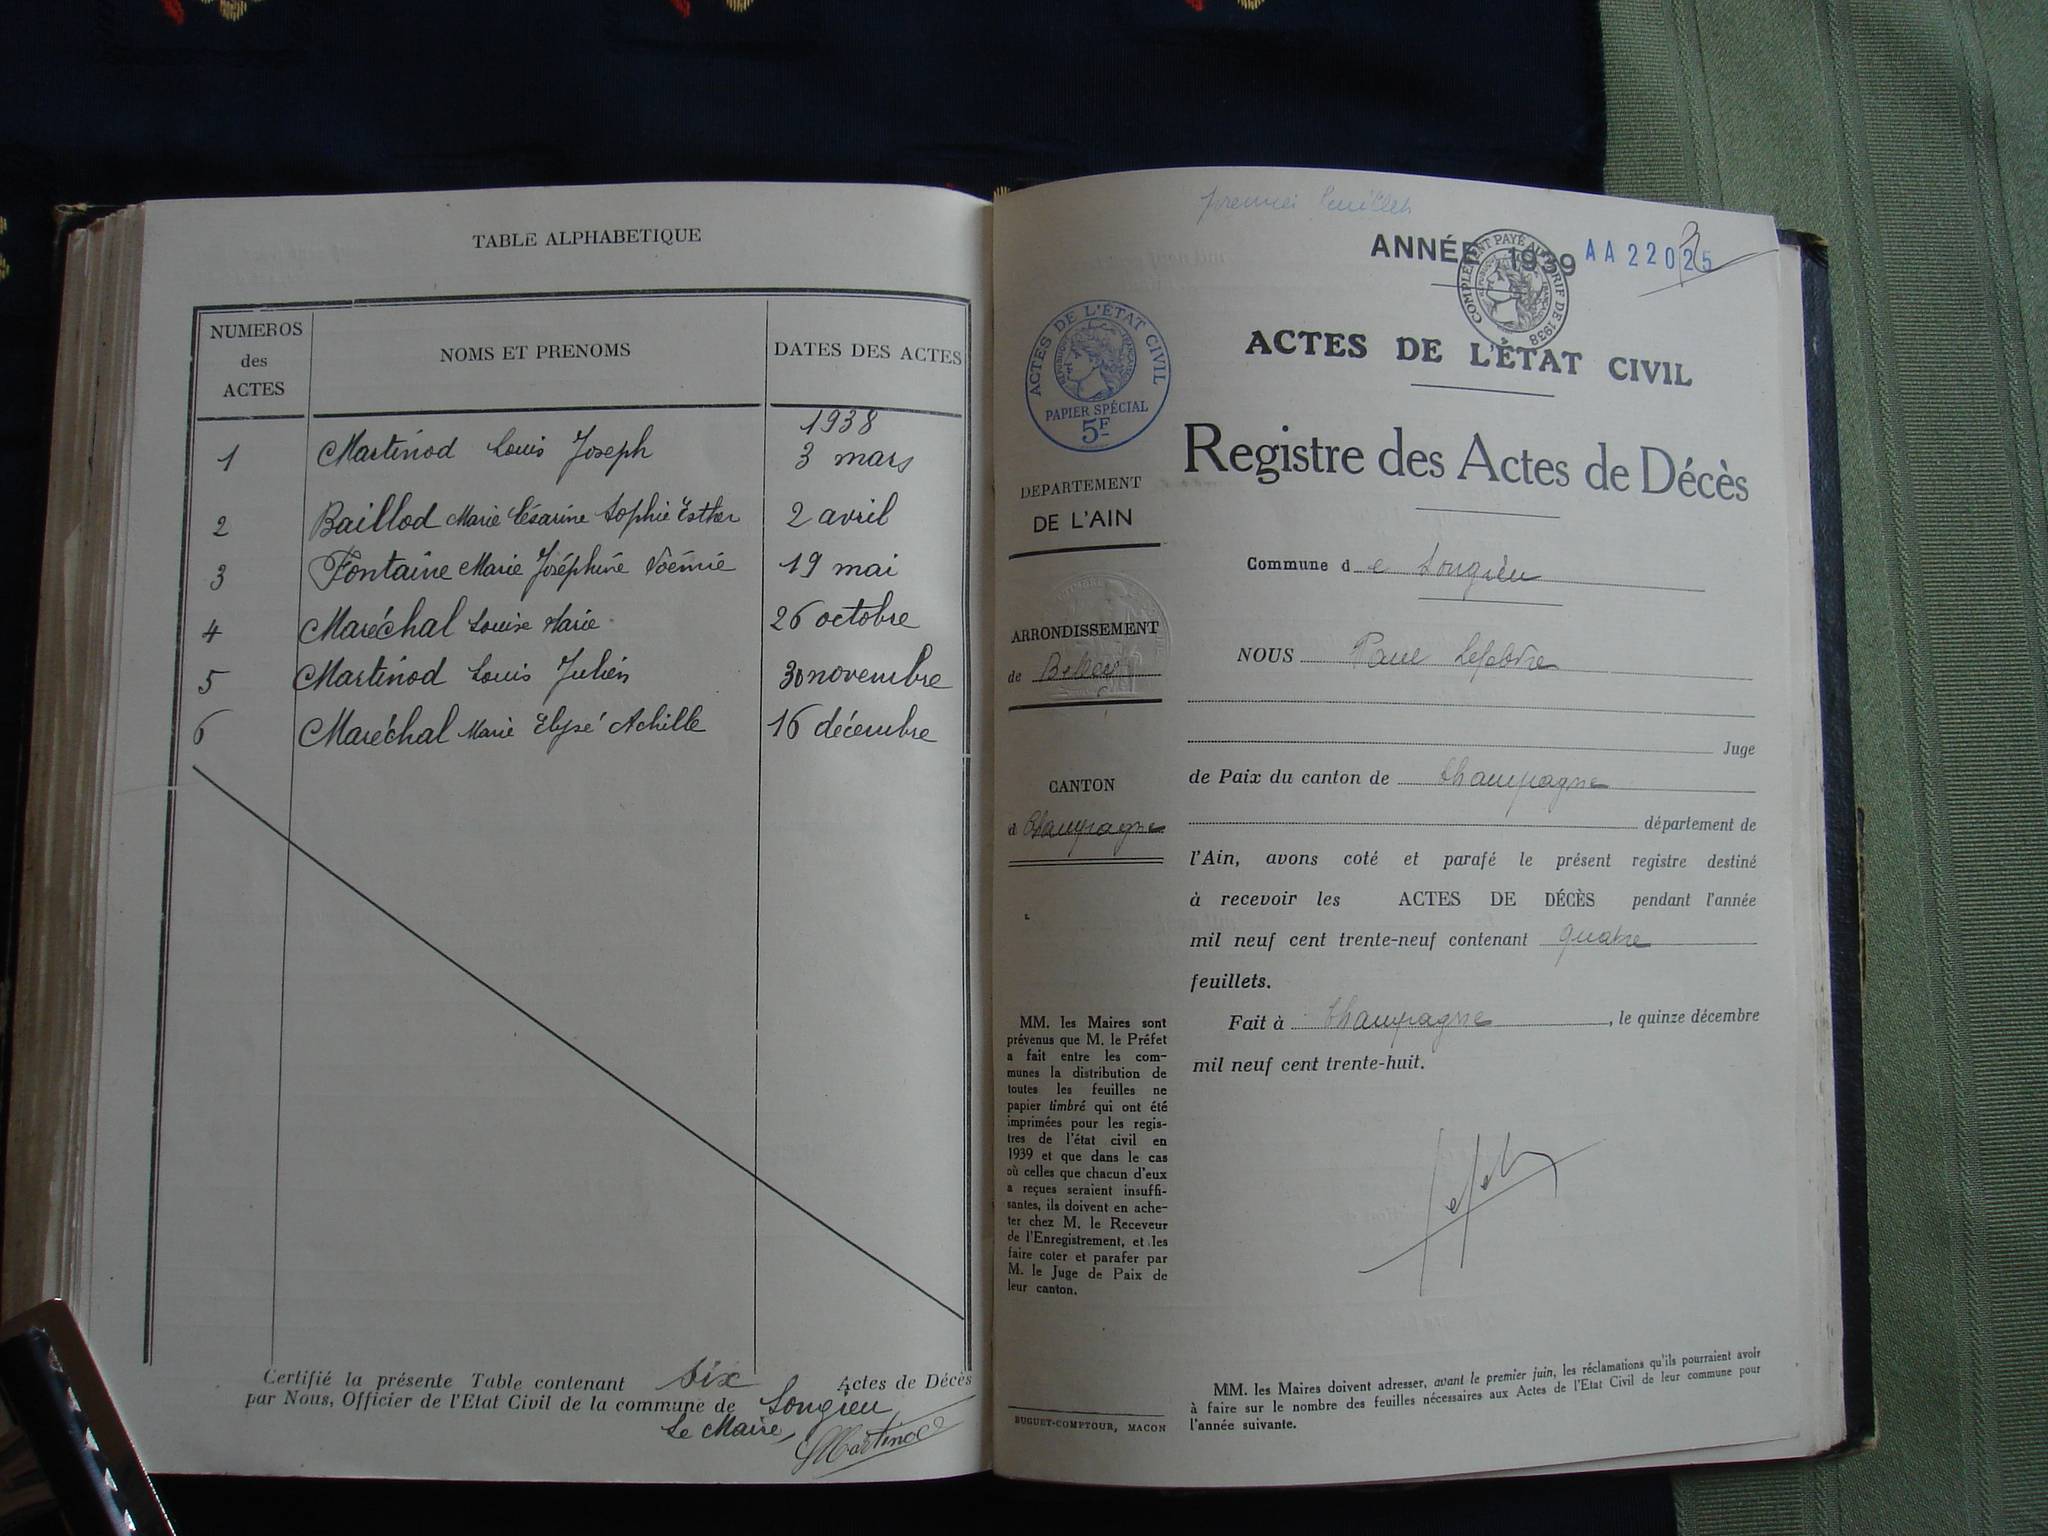 TABLE ALPHABETIQUE
NUMEROS des ACTES
NOMS ET PRENOMS
DATES DES ACTES
1938
1 Martinod Louis Joseph 3 mars
2 Baillod Marie Césarine Sophie Esther 2 avril
3 Fontaine Marie Joséphine Noémie 19 mai
4 Maréchal Louise Marie 26 octobre
5 Martinod Louis Julien 30 novembre
6 Maréchal Marie Elysé Achille 16 décembre
Certifié la présente Table contenant six Actes de Décès
par Nous, Officier de l'Etat Civil de la commune de Songieu
Le Maire,
Martinod
premier feuillet
ANNÉE 1939 AA22025
COMPLÉMENT PAYÉ AU TARIF DE 1938
ACTES DE L'ÉTAT CIVIL
RÉPUBLIQUE FRANÇAISE
PAPIER SPÉCIAL
5F
DEPARTEMENT
DE L'AIN
ARRONDISSEMENT
de Belley
CANTON
d Champagne
MM. les Maires sont
prévenus que M. le Préfet
a fait entre les com-
munes la distribution de
toutes les feuilles ne
papier timbré qui ont été
imprimées pour les regis-
tres de l'état civil en
1939 et que dans le cas
où celles que chacun d'eux
a reçues seraient insuffi-
santes, ils doivent en ache-
ter chez M. le Receveur
de l'Enregistrement, et les
faire coter et parafer par
M. le Juge de Paix de
leur canton.
BUGUET-COMPTOUR, MACON
ACTES DE L'ÉTAT CIVIL
Registre des Actes de Décès
Commune de Songieu
NOUS Paul Lefebvre
Juge
de Paix du canton de Champagne
département de
l'Ain, avons coté et parafé le présent registre destiné
à recevoir les ACTES DE DÉCÈS pendant l'année
mil neuf cent trente-neuf contenant quatre
feuillets.
Fait à Champagne, le quinze décembre
mil neuf cent trente-huit.
MM. les Maires doivent adresser, avant le premier juin, les réclamations qu'ils pourraient avoir
à faire sur le nombre des feuilles nécessaires aux Actes de l'Etat Civil de leur commune pour
l'année suivante.